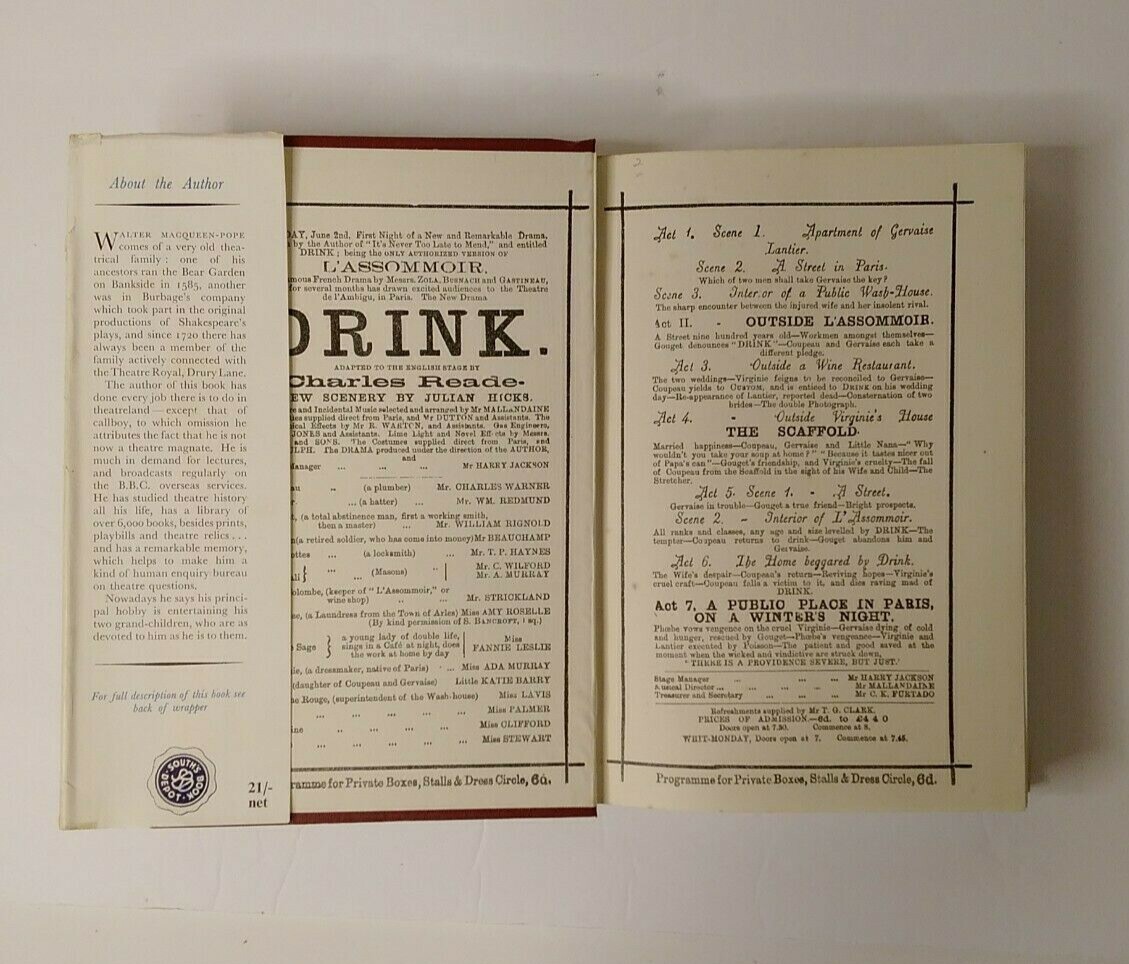 About the Author
WALTER MACQUEEN-POPE
comes of a very old thea-
trical family : one of his
ancestors ran the Bear Garden
on Bankside in 1585, another
was in Burbage's company
which took part in the original
productions of Shakespeare's
plays, and since 1720 there has
always been a member of the
family actively connected with
the Theatre Royal, Drury Lane.
The author of this book has
done every job there is to do in
theatreland — except that of
callboy, to which omission he
attributes the fact that he is not
now a theatre magnate. He is
much in demand for lectures,
and broadcasts regularly on
the B.B.C. overseas services.
He has studied theatre history
all his life, has a library of
over 6,000 books, besides prints,
playbills and theatre relics . . .
and has a remarkable memory,
which helps to make him a
kind of human enquiry bureau
on theatre questions.
Nowadays he says his princi-
pal hobby is entertaining his
two grand-children, who are as
devoted to him as he is to them.
For full description of this book see
back of wrapper
SOUTH'S BOOK DEPOT
21/-
net
AY, June 2nd, First Night of a New and Remarkable Drama,
by the Author of "It's Never Too Late to Mend," and entitled
DRINK ; being the ONLY AUTHORIZED VERSION OF
L'ASSOMMOIR,
mous French Drama by Messrs. ZOLA, BUSNACH and GASTINEAU,
for several months has drawn excited audiences to the Theatre
de l'Ambigu, in Paris. The New Drama
DRINK.
ADAPTED TO THE ENGLISH STAGE BY
Charles Reade-
EW SCENERY BY JULIAN HICKS.
e and Incidental Music selected and arranged by Mr MALLANDAINE
es supplied direct from Paris, and Mr DUTTON and Assistants. The
ical Effects by Mr R. WARTON, and Assistants. Gas Engineers,
JONES and Assistants. Lime Light and Novel Effects by Messrs.
and SONS. The Costumes supplied direct from Paris, and
LPH. The DRAMA produced under the direction of the AUTHOR,
and
anager ... ... ... Mr HARRY JACKSON
au .. (a plumber) Mr. CHARLES WARNER
r ... (a hatter) ... Mr. WM. REDMUND
t, (a total abstinence man, first a working smith,
then a master) ... Mr. WILLIAM RIGNOLD
n(a retired soldier, who has come into money)Mr BEAUCHAMP
ttes ... (a locksmith) ... Mr. T. P. HAYNES
Mr. C. WILFORD
li } ... (Masons) ..
Mr. A. MURRAY
olombe, (keeper of "L'Assommoir," or
wine shop) .. Mr. STRICKLAND
se, (a Laundress from the Town of Arles) Miss AMY ROSELLE
(By kind permission of S. BANCROFT, Esq.)
Sage } a young lady of double life, Miss
sings in a Café at night, does FANNIE LESLIE
the work at home by day
ie, (a dressmaker, native of Paris) ... Miss ADA MURRAY
(daughter of Coupeau and Gervaise) Little KATIE BARRY
e Rouge, (superintendent of the Wash-house) Miss LAVIS
... ... ... ... Miss PALMER
ne ... ... ... Miss CLIFFORD
... ... ... ... Miss STEWART
ramme for Private Boxes, Stalls & Dress Circle, 6d.
2
Act 1. Scene 1. Apartment of Gervaise
Lantier.
Scene 2. A Street in Paris.
Which of two men shall take Gervaise the key?
Scene 3. Interior of a Public Wash-House.
The sharp encounter between the injured wife and her insolent rival.
Act II. - OUTSIDE L'ASSOMMOIR.
A Street nine hundred years old—Workmen amongst themselves—
Gouget denounces "DRINK"—Coupeau and Gervaise each take a
different pledge.
Act 3. Outside a Wine Restaurant.
The two weddings—Virginie feigns to be reconciled to Gervaise—
Coupeau yields to CUSTOM, and is enticed to DRINK on his wedding
day—Re-appearance of Lantier, reported dead—Consternation of two
brides—The double Photograph.
Act 4. - Outside Virginie's House
THE SCAFFOLD.
Married happiness—Coupeau, Gervaise and Little Nana—"Why
wouldn't you take your soup at home?" "Because it tastes nicer out
of Papa's can"—Gouget's friendship, and Virginie's cruelty—The fall
of Coupeau from the Scaffold in the sight of his Wife and Child—The
Stretcher.
Act 5. Scene 1. - A Street.
Gervaise in trouble—Gouget a true friend—Bright prospects.
Scene 2. - Interior of L'Assommoir.
All ranks and classes, any age and size levelled by DRINK—The
tempter—Coupeau returns to drink—Gouget abandons him and
Gervaise.
Act 6. The Home beggared by Drink.
The Wife's despair—Coupeau's return—Reviving hopes—Virginie's
cruel craft—Coupeau falls a victim to it, and dies raving mad of
DRINK.
Act 7, A PUBLIC PLACE IN PARIS,
ON A WINTER'S NIGHT.
Phœbe vows vengence on the cruel Virginie—Gervaise dying of cold
and hunger, rescued by Gouget—Phœbe's vengeance—Virginie and
Lantier executed by Poisson—The patient and good saved at the
moment when the wicked and vindictive are struck down,
'THERE IS A PROVIDENCE SEVERE, BUT JUST.'
Stage Manager ... ... ... Mr HARRY JACKSON
Musical Director ... ... ... ... Mr MALLANDAINE
Treasurer and Secretary ... ... ... Mr C. K. FURTADO
Refreshments supplied by Mr T. G. CLARK.
PRICES OF ADMISSION.—6d. to £4 4 0
Doors open at 7.30. Commence at 8.
WHIT-MONDAY, Doors open at 7. Commence at 7.45.
Programme for Private Boxes, Stalls & Dress Circle, 6d.